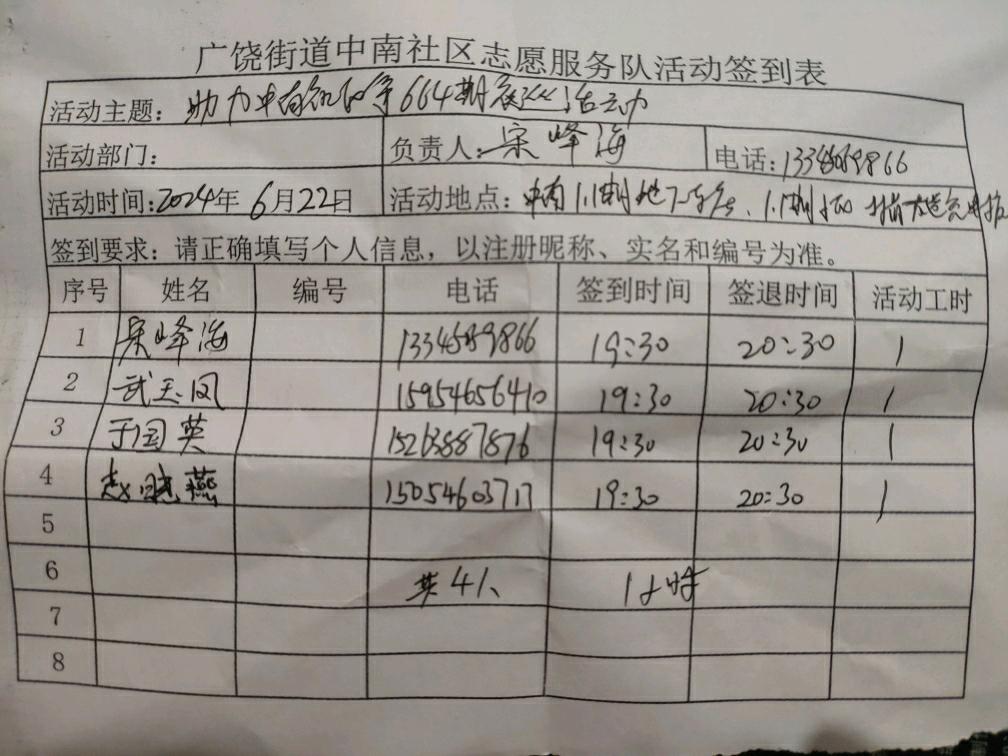 广饶街道中南社区志愿服务队活动签到表
活动主题: 助力中南 第664期夜巡活动
活动部门: 负责人: 宋峰海 电话: 13345469866
活动时间: 2024年6月22日 活动地点: 中南1.1期地下车库、1.1期
签到要求: 请正确填写个人信息，以注册昵称、实名和编号为准。
序号 姓名 编号 电话 签到时间 签退时间 活动工时
1 宋峰海 19:30 20:30 1
2 武玉凤 15954656410 19:30 20:30 1
3 于国英 15263887876 19:30 20:30 1
4 赵晓燕 15054603717 19:30 20:30 1
5
6 共4人 1小时
7
8